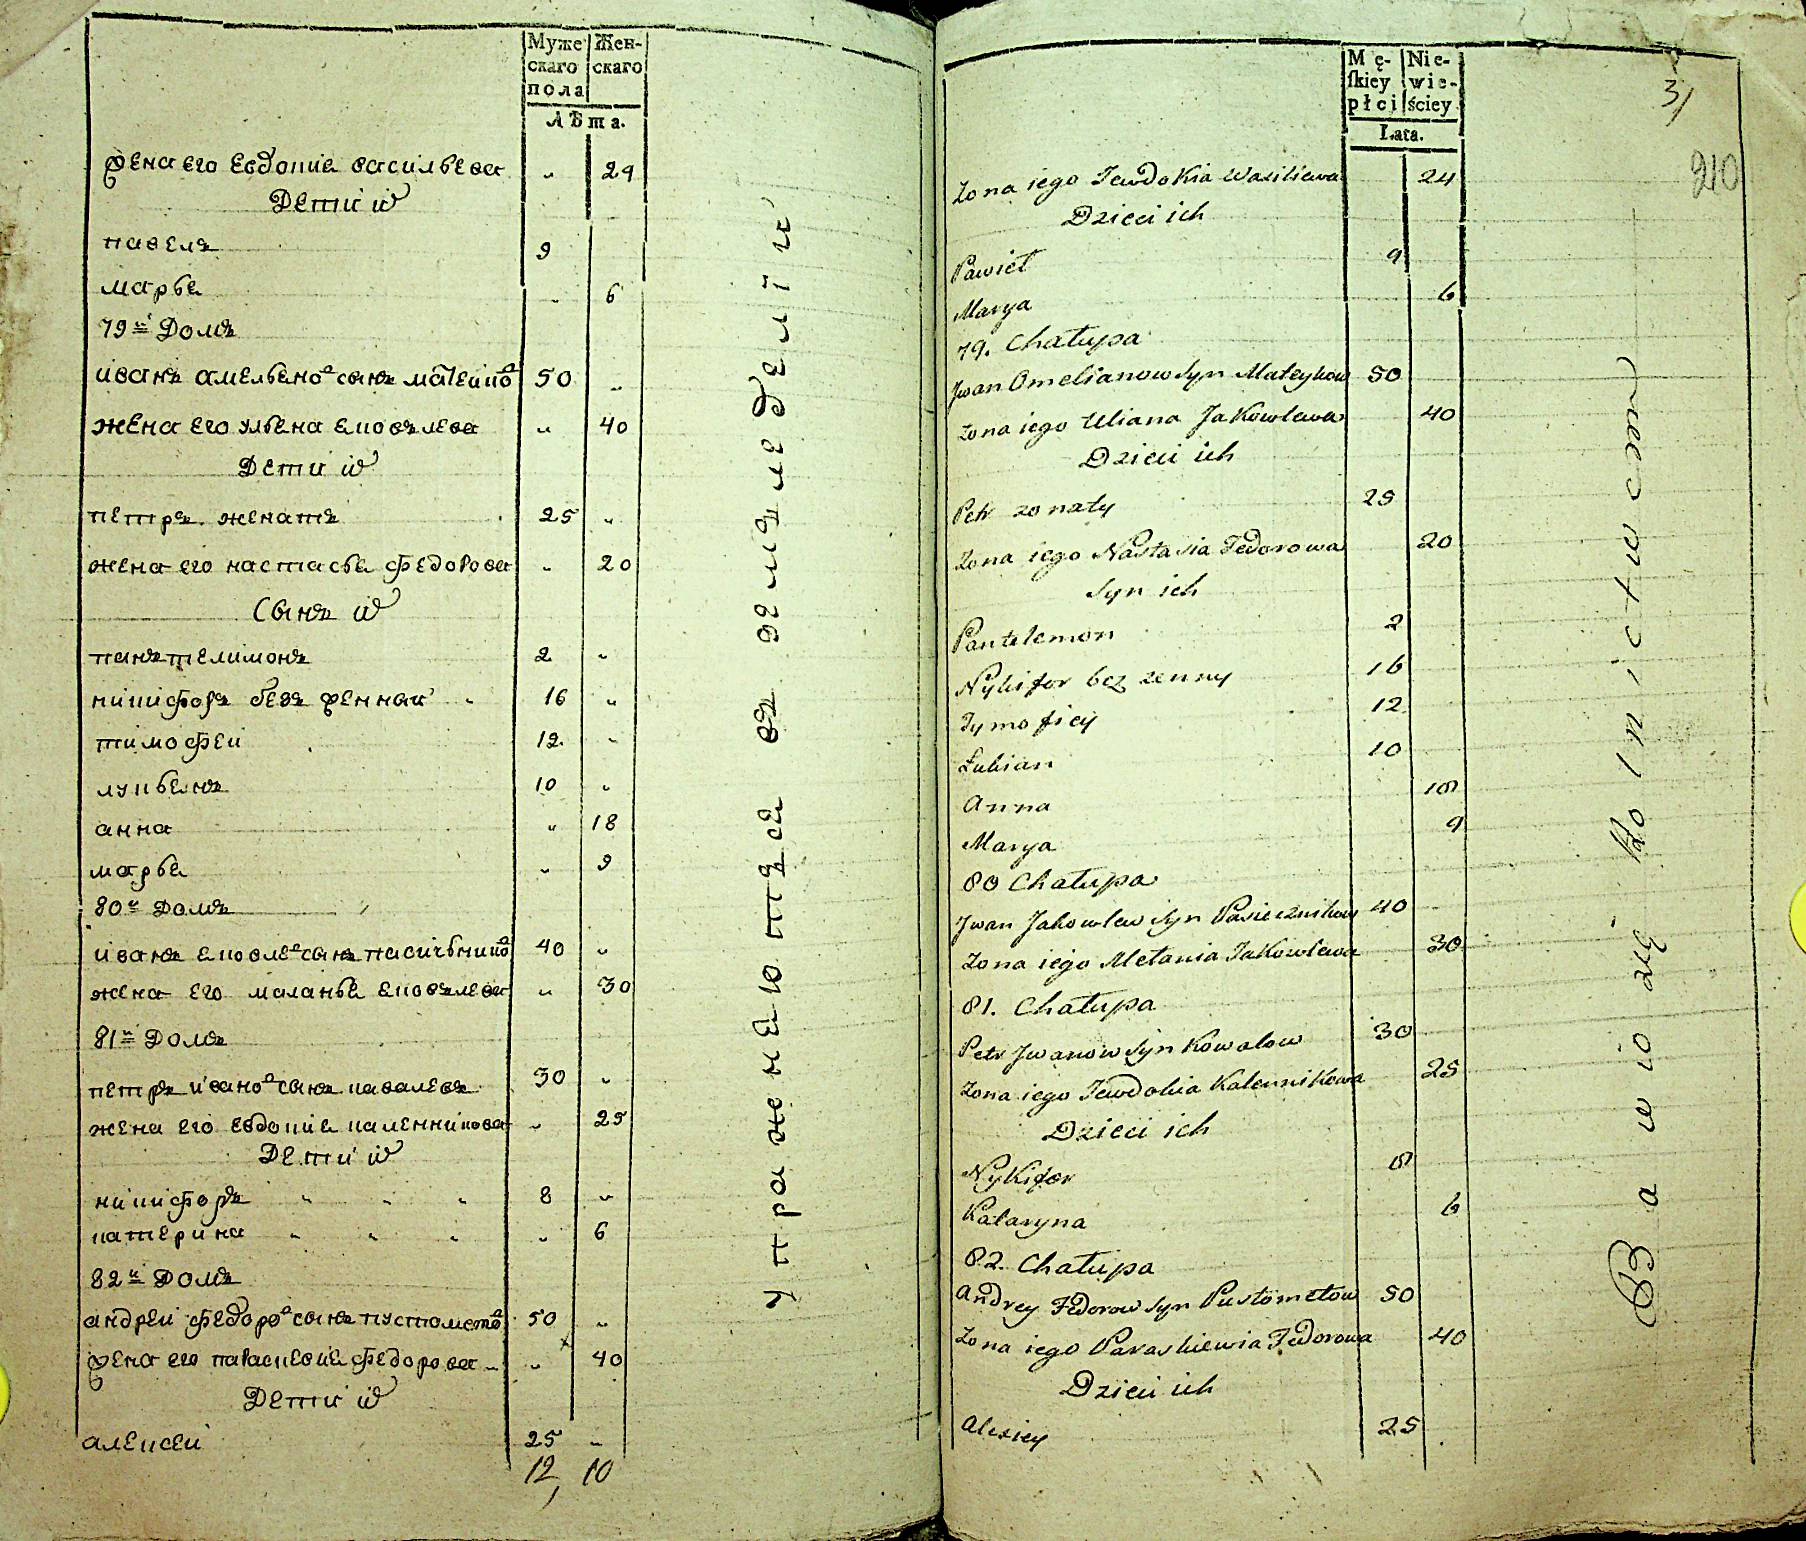 Муже
скаго
пола
Жен-
скаго
Лѣта.
жена его евдокиѧ васильева „ 24
Дети иⷯ
павелъ 9
марьѧ „ 6
79й Домъ
иванъ амельѧноⷡ сынъ матеикоⷡ 50 „
жена его ульѧна ѧковълева „ 40
Дети иⷯ
петръ женатъ 25 „
жена его настасьѧ федорова „ 20
Сынъ иⷯ
панътелимонъ 2 „
никифоръ безъ женныи 16 „
тимофеи 12 „
лукьѧнъ 10 „
анна „ 18
марьѧ „ 9
80й Домъ
иванъ ѧковлеⷡ сынъ пасичьникоⷡ 40 „
жена его маланьѧ ѧковълева „ 30
81й Домъ
петръ иваноⷡ сынъ кавалевъ 30 „
жена его евдокиѧ каленникова „ 25
Дети иⷯ
никифоръ „ „ „ 8 „
катерина „ „ „ „ 6
82й Домъ
андреи федороⷡ сынъ пустометоⷡ 50 „
жена его параскевиѧ федорова „ „ 40
Дети иⷯ
алексеи 25 „
12, 10
упражнѧютъсѧ въ земъледелїи
Mę-
ſkiey
płci
Nie-
wie-
ściey
Lata.
31
210
Zona iego Jewdokia Wasiliewa 24
Dzieci ich
Pawieł 9
Marya 6
79. Chałupa
Jwan Omelianow Syn Mateykow 50
Zona iego Uliana Jakowlewa 40
Dzieci ich
Petr zonaty 25
Zona iego Nastasia Fedorowa 20
Syn ich
Pantelemon 2
Nykifor bez zenny 16
Tymofiey 12
Łukian 10
Anna 18
Marya 9
80 Chałupa
Jwan Jakowlew Syn Pasiecznikow 40
Zona iego Mełania Jakowlewa 30
81. Chałupa
Petr Jwanow Syn Kowalow 30
Zona iego Jewdokia Kalennikowa 25
Dzieci ich
Nykifor 8
Kataryna 6
82. Chałupa
Andrey Fedorow Syn Pustometow 50
Zona iego Paraskiewia Fedorowa 40
Dzieci ich
Alexiey 25
Bawio zię Rolnictwem